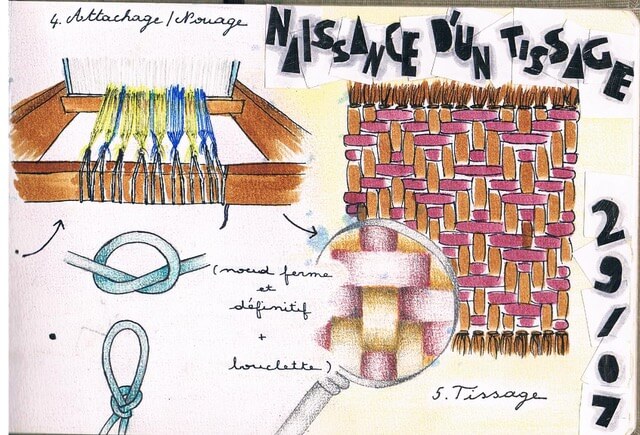 4. Attachage/Nouage
NAISSANCE D'UN TISSAGE
29/07
(nœud ferme
et
définitif
+
bouclette)
5. Tissage